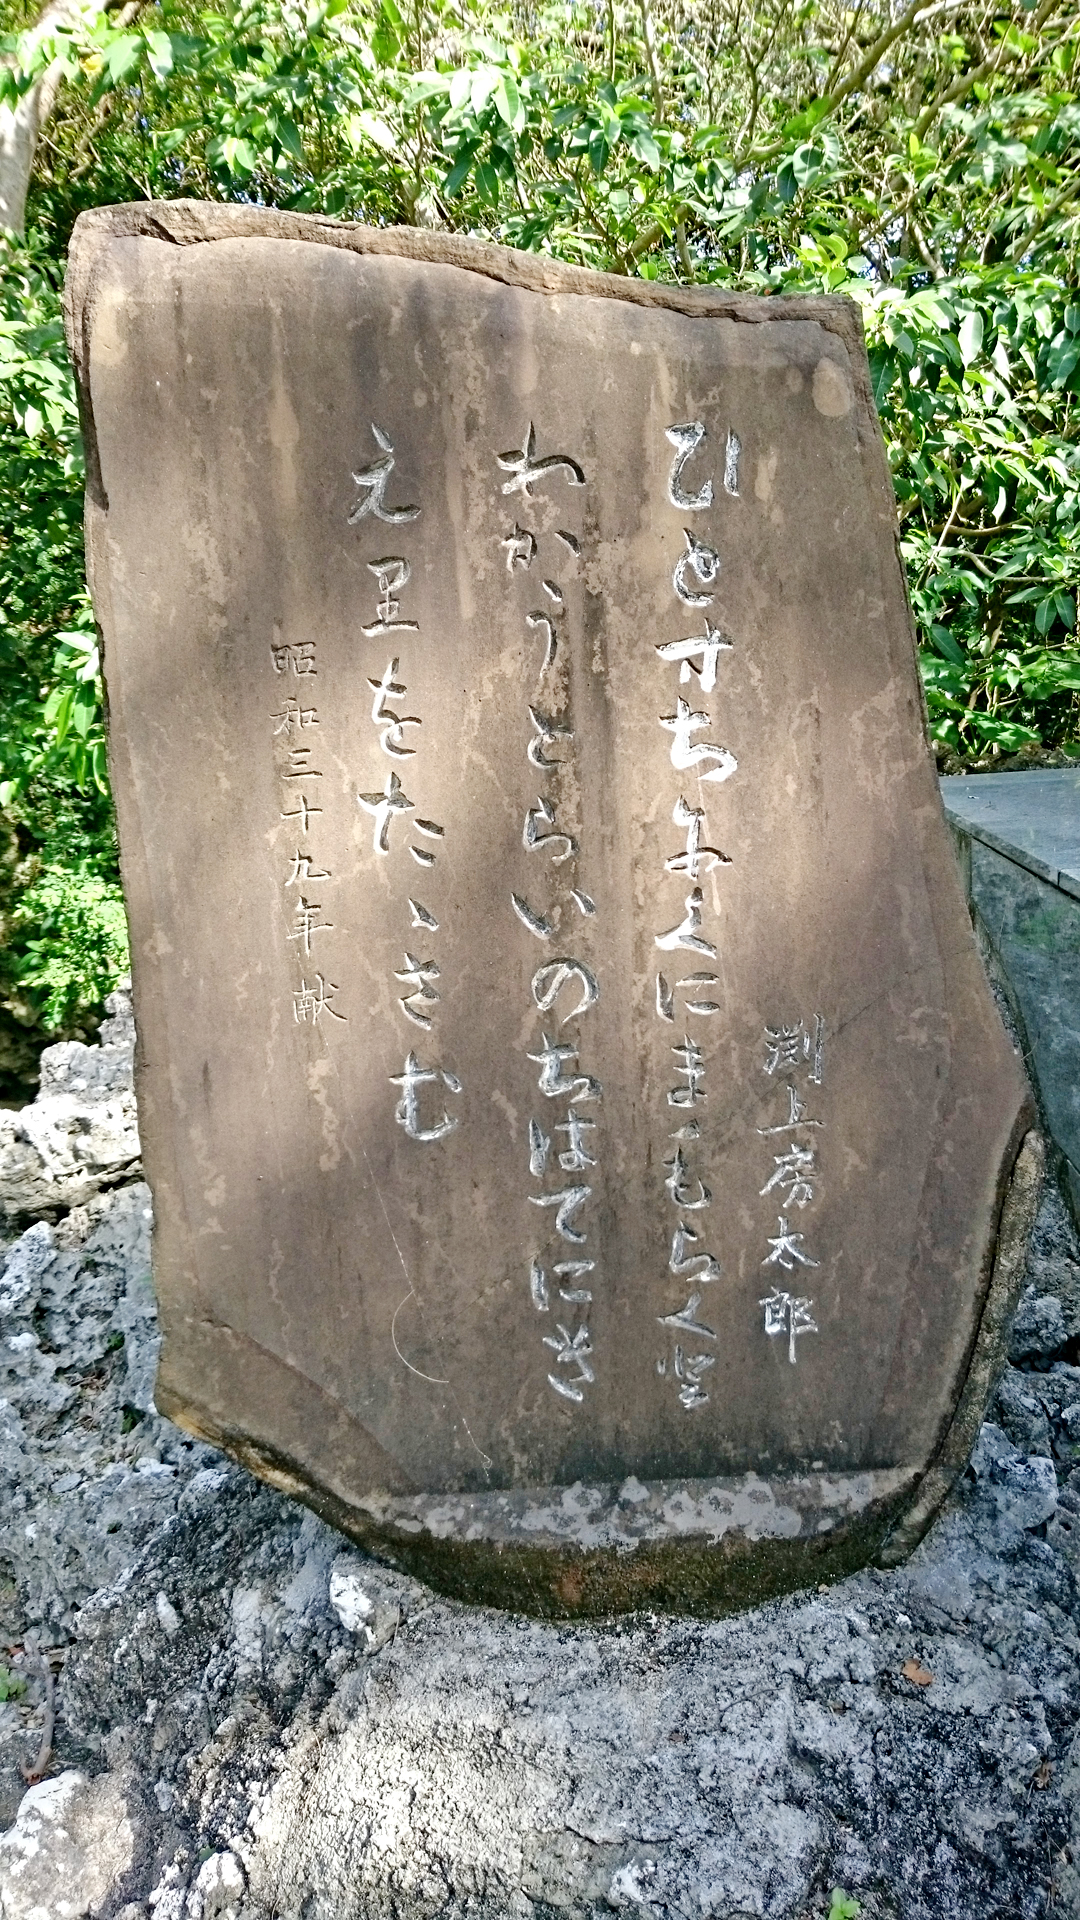 渕上房太郎
ひとすち尓くにまもらく登
わかうとらいのちはてにき
え里をたゝさむ
昭和三十九年献